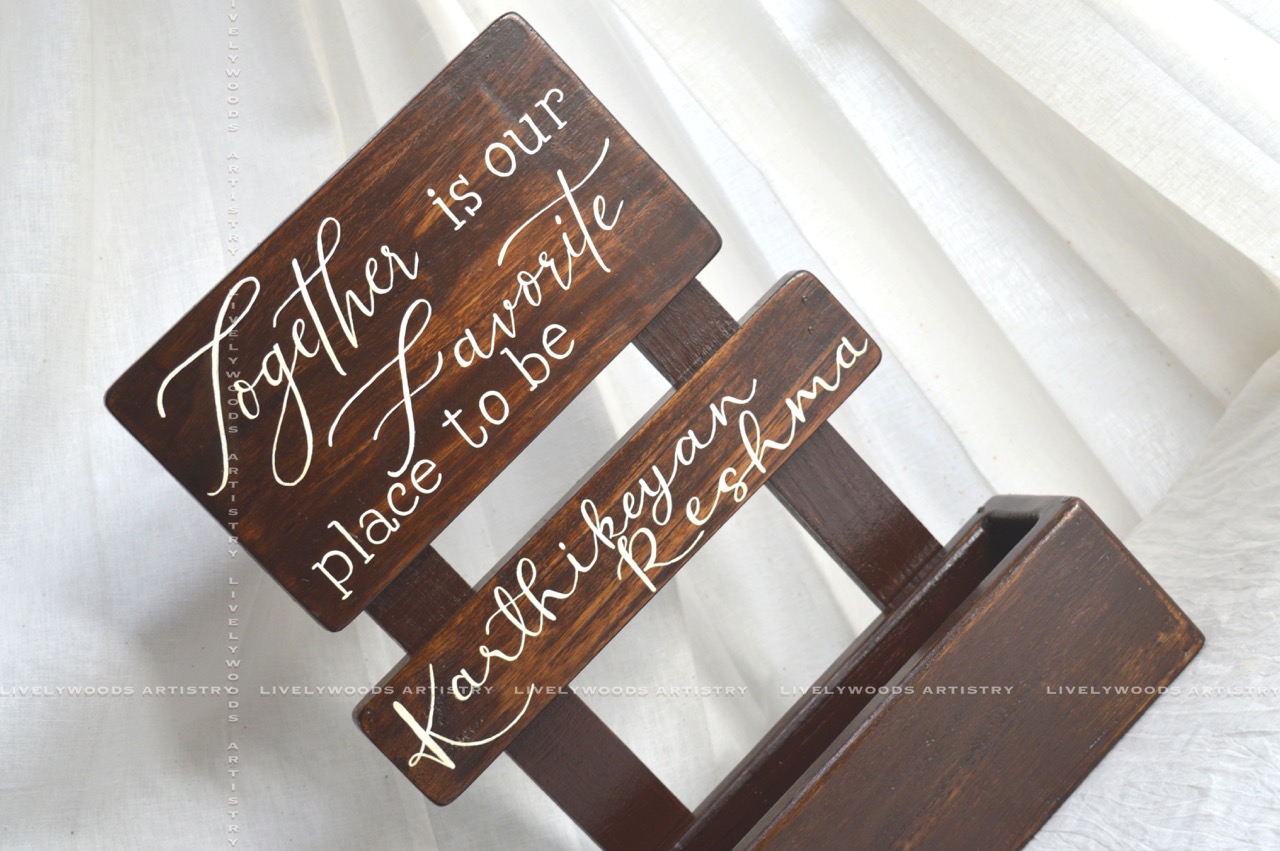 Together is our
Favorite
place to be
Karthikeyan
Reshma
LIVELYWOODS ARTISTRY LIVELYWOODS ARTISTRY LIVELYWOODS ARTISTRY LIVELYWOODS ARTISTRY LIVELYWOODS ARTISTRY
LIVELYWOODS ARTISTRY LIVELYWOODS ARTISTRY LIVELYWOODS ARTISTRY